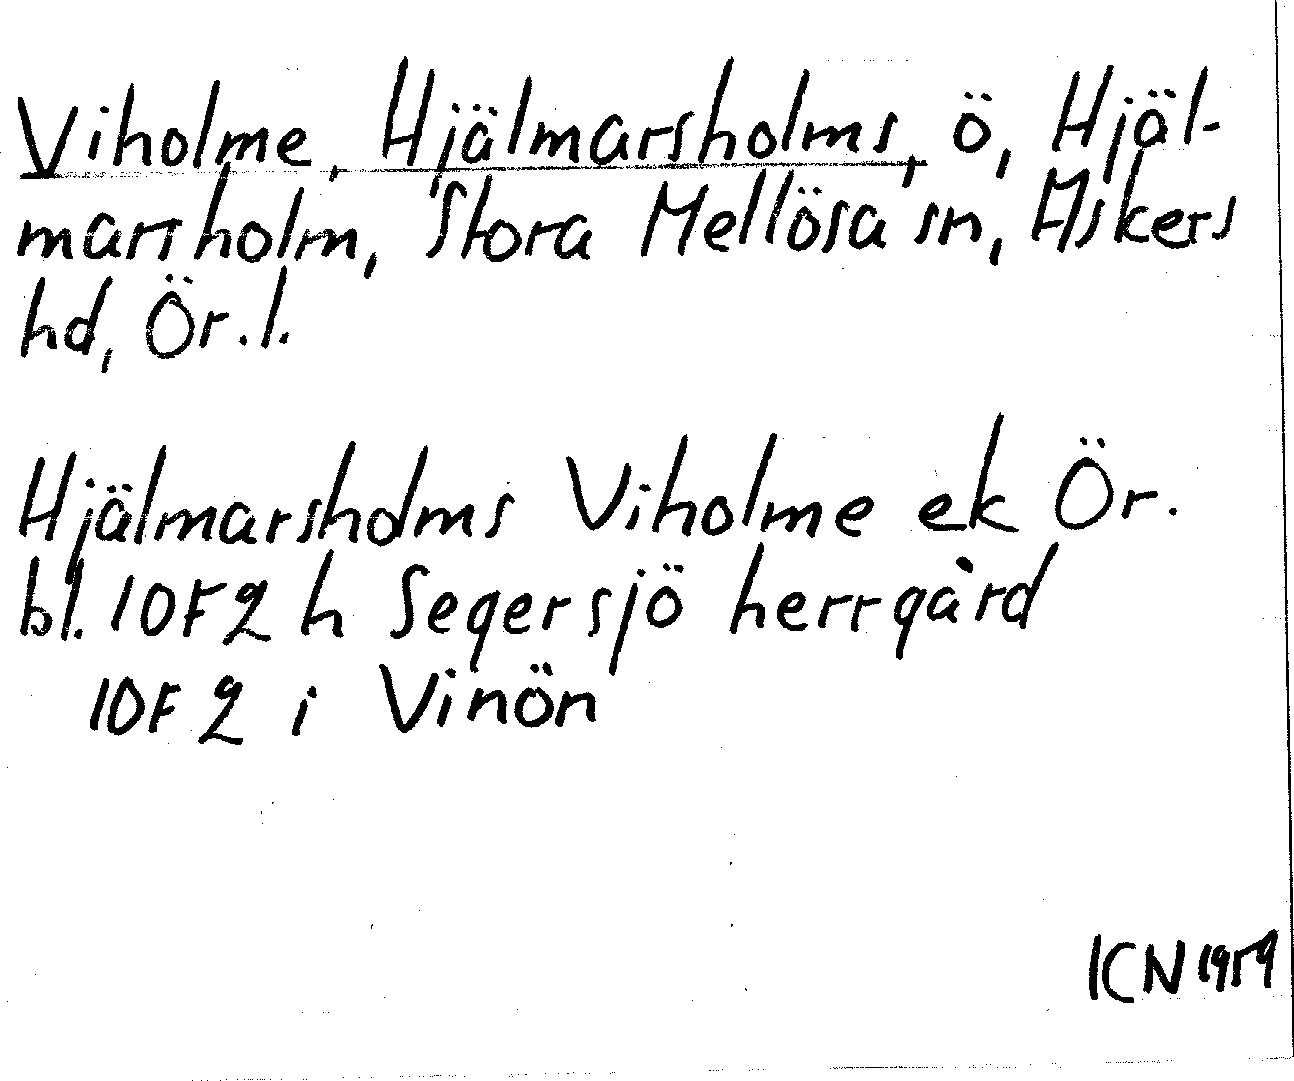 Viholme, Hjälmarsholms, ö, Hjäl-
marsholm, Stora Mellösa sn, Askers
hd, Ör. l.
Hjälmarsholms Viholme ek Ör.
bl. 10F 2 h Segersjö herrgård
10F 2 i Vinön
ICN 1959